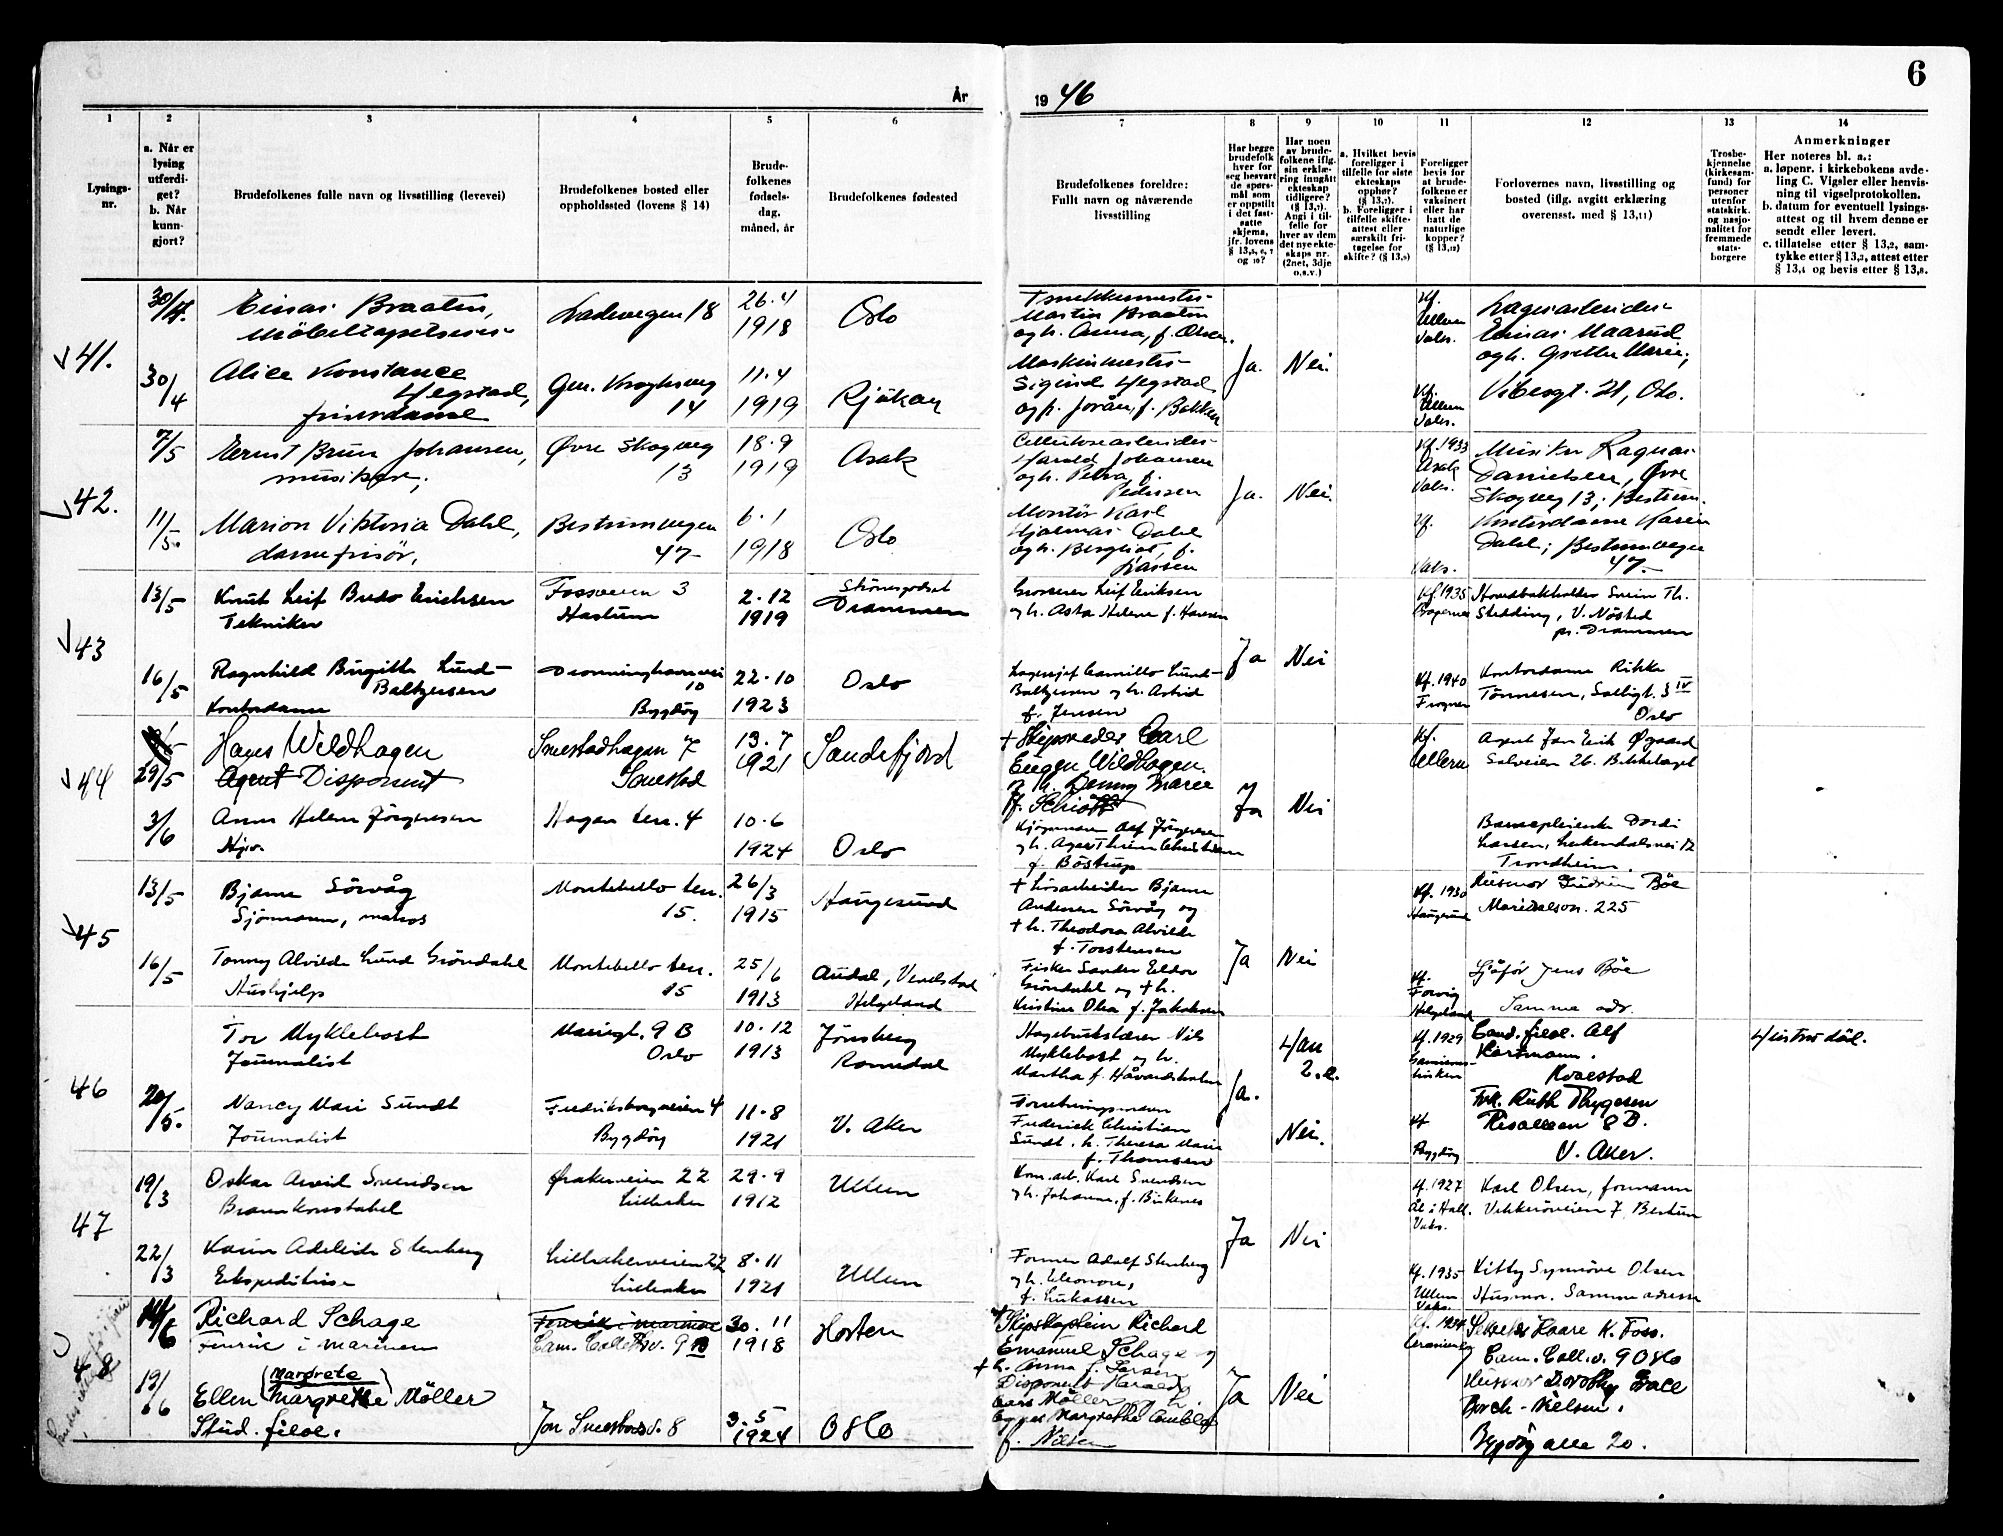 6
År
19 46
1
2
3
4
5
6
7
8
9
10
11
12
13
14
Lysings-
nr.
a. Når er
lysing
utferdi-
get?
b. Når
kunn-
gjort?
Brudefolkenes fulle navn og livsstilling (levevei)
Brudefolkenes bosted eller
oppholdssted (lovens § 14)
Brude-
folkenes
fødsels-
dag,
måned, år
Brudefolkenes fødested
Brudefolkenes foreldre:
Fullt navn og nåværende
livsstilling
Har begge
brudefolk
hver for
seg besvart
de spørs-
mål som
er oppstilt
i det fast-
satte
skjema,
jfr. lovens
og 10?
Har noen
av brude-
folkene iflg.
sin erklæ-
ring inngått
ekteskap
tidligere?
Angi i til-
felle for
hver av dem
det nye ekte-
skaps nr.
(2net, 3dje
o.s.v.)
a. Hvilket bevis
foreligger i
tilfelle for siste
ekteskaps
opphør?
b. Foreligger i
tilfelle skifte-
attest eller
særskilt fri-
tagelse for
skifte?
Foreligger
bevis for
at brude-
folkene er
vaksinert
eller har
hatt de
naturlige
kopper?
Forlovernes navn, livsstilling og
bosted (iflg. avgitt erklæring
overensst. med § 13,11)
Trosbe-
kjennelse
(kirkesam-
fund) for
personer
utenfor
statskirk.
og nasjo-
nalitet for
fremmede
stats-
borgere
Anmerkninger
Her noteres bl. a.:
a. løpenr. i kirkebokens avde-
ling C. Vigsler eller henvis-
ning til vigselprotokollen.
b. datum for eventuell lysings-
attest og til hvem denne er
sendt eller levert.
c. tillatelse etter § 13,2, sam-
tykke etter § 13,3, attest etter
§ 13,4 og bevis etter § 13,8.
41.
30/4.
Einar Braaten,
Ladevegen 18
26.4
1918
Oslo
Martin Braaten
og h. Anna, f. Olsen.
Kf.
Ullern
Vaks.
Lagerarbeider
Einar Maarud
og h. Grethe Marie,
30/4
Alice Konstance
Hegstad,
frisørdame
Gen. Kroghsveg
14
11.4
1919
Rjukan
Maskinmester
Sigurd Hegstad
og h. Jorån, f. Bakken
Ja.
Nei.
Kf.
Ullern
Vaks.
Vibesgt. 21, Oslo.
42.
7/5
Ernst Brun Johansen,
musiker,
Øvre Skogveg
13
18.9
1919
Asak
Cellulosearbeider
Harald Johansen
og h. Petra, f.
Pedersen
Ja.
Nei.
Kf. 1933
Asak
Vaks.
Musiker Ragnar
Danielsen, Øvre
Skogveg 13, Bestum.
11/5.
Marion Viktoria Dahl,
damefrisør,
Bestumvegen
47
6.1
1918
Oslo
Montør Karl
Hjalmar Dahl
og h. Bergliot, f.
Larsen
Kf.
Vaks.
Kontordame Karin
Dahl, Bestumvegen
47.
43
13/5
Knut Leif Budo Erichsen
Tekniker
Fossveien 3
Hastum
2.12
1919
Drammen
Grosserer Leif Eriksen
og h. Asta Helene f. Hansen
Ja
Nei
Kf. 1935
Bragernes
pr. Drammen
16/5
Ragnhild Birgitte Lund-
Baltzersen
Kontordame
Dronninghavnvei
10
Bygdøy
22.10
1923
Oslo
Lagersjef Camillo Lund-
Baltzersen og h. Astrid
f. Jensen
Kf. 1940
Frogner
Kontordame Rikka
Tønnesen, Soligt. 3 IV
Oslo
44
29/5
Hans Wildhagen
Agent Disponent
Smestadhagen 7
Smestad
13.7
1921
Sandefjord
† Skipsreder Carl
Eugen Wildhagen.
og h. Denny Marie
f. Schiøtt
Ja
Nei
Kf.
Ullern
Agent Jan Erik Øgaard
Solveien 26. Bekkelaget
3/6
Anne Helene Jørgensen
Hjv.
Hagan terr. 4
10.6
1924
Oslo
f. Böstrup
Barnepleierske Dordi
Larsen,
Trondheim
45
13/5
Bjarne Sörvåg
Sjömann, matros
Montebello terr.
15.
26/3
1915
Haugesund
† Løsarbeider Bjarne
Andersen Sörvåg og
† h. Theodora Alvilde
f. Torstensen
Ja
Nei
Kf. 1930
Haugesund
Husmor Gudrun Böe
Maridalsvn. 225
16/5
Tommy Alvilde Lund Gröndahl
Hushjelp
Montebello terr.
15
25/6
1913
Helgeland
Fisker Sander Eldor
Gröndahl og † h.
Kristine Olea f. Jakobsen
Kf.
Forvig
Helgeland
Sjåför Jens Böe
Samme adr.
46
Tor Myklebost
Journalist
Mariegt. 9 B
Oslo
10.12
1913
Jönsberg
Romedal
Hagebrukslærer Nils
Myklebost og h.
Martha f. Håvardsholm
Ja.
Han
2.e.
Kf. 1929
Cand. filol. Alf
Hartmann.
Kvaestad
20/5.
Nancy Mari Sundt
Journalist
Fredriksborgveien 4
Bygdöy
11.8
1921
V. Aker
Forretningsmann
Frederick Christian
Sundt. h. Theresa Marie
f. Thomsen
Nei.
Kf
Bygdöy
Frk. Ruth Thygesen
Risalleen 8 B.
V. Aker.
47
19/3
Oskar Arvid Svendsen
Brannkonstabel
Ørakerveien 22
Lilleaker
29.9
1912
Ullern
Kom. arb. Karl Svendsen
og h. Johanne, f. Birkenes
Ja
Nei
Kf. 1927
Ål i Hall.
Vaks.
Karl Olsen, formann
Vekkeröveien 7. Bestum
22/3
Karin Adeleide Stenberg
Ekspeditrise
Lilleakerveien 22
Lilleaker
8.11
1921
Ullern
Former Adolf Stenberg
og h. Eleonore,
f. Lukassen
Kf. 1935
Ullern
Vaks.
Kitty Synnöve Olsen
Husmor. Samme adresse
48
14/6
Richard Schage
Fenrik i marinen
Fenrik i marinen
Cam. Collettsv. 9 B
30.11
1918
Horten
† Skipskaptein Richard
Emanuel Schage og
† h. Anna f. Larsen
Ja
Nei
Kf. 1934
Sekretær Kaare K. Foss.
Cam. Coll. v. 9 Oslo
19/6
(Margrete)
Ellen Margrethe Möller
Stud. filol.
Jon Smestads v. 8
3.5
1924
Oslo
Disponent Harald
Lars Möller og h.
Agnes Margrethe Camilla
f. Nilsen
Husmor Dorothy Zace
Borch-Nielsen.
Bygdöy alle 20.